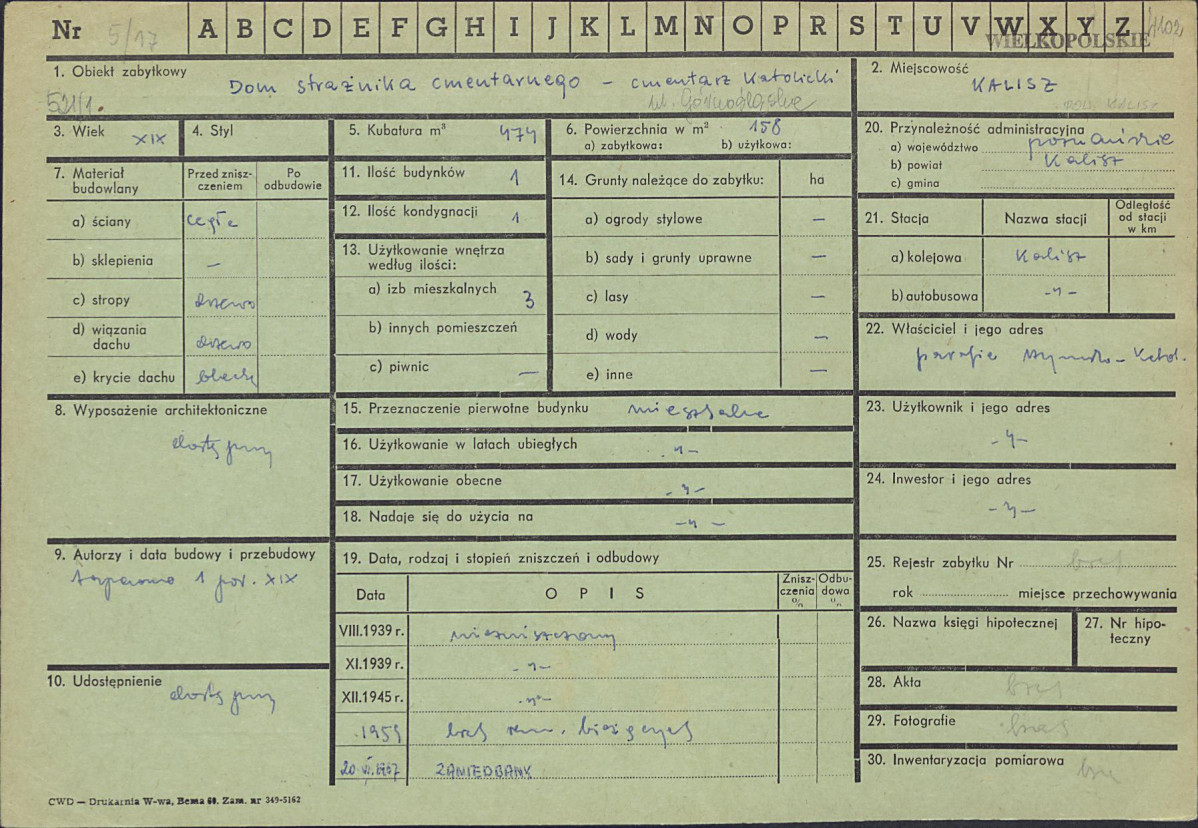 Nr 5/17 A B C D E F G H I J K L M N O P R S T U V W X Y Z
WIELKOPOLSKIE
1. Obiekt zabytkowy Dom strażnika cmentarnego – cmentarz Katolicki
ul. Górnośląska
2. Miejscowość
KALISZ
pow. KALISZ
3. Wiek XIX
4. Styl
5. Kubatura m³ 474
6. Powierzchnia w m² 158
a) zabytkowa: b) użytkowa:
20. Przynależność administracyjna
a) województwo poznańskie
b) powiat Kalisz
c) gmina
7. Materiał budowlany
Przed zniszczeniem
Po odbudowie
a) ściany cegła
b) sklepienia –
c) stropy drzewo
d) wiązania dachu drzewo
e) krycie dachu blacha
11. Ilość budynków 1
12. Ilość kondygnacji 1
13. Użytkowanie wnętrza
według ilości:
a) izb mieszkalnych 3
b) innych pomieszczeń
c) piwnic –
14. Grunty należące do zabytku: ha
a) ogrody stylowe –
b) sady i grunty uprawne –
c) lasy –
d) wody –
e) inne –
21. Stacja Nazwa stacji
Odległość
od stacji
w km
a) kolejowa Kalisz
b) autobusowa -"-
22. Właściciel i jego adres
parafia rzymsko-katol.
8. Wyposażenie architektoniczne
dostępny
15. Przeznaczenie pierwotne budynku mieszkalne
16. Użytkowanie w latach ubiegłych -"-
17. Użytkowanie obecne -"-
18. Nadaje się do użycia na -"-
23. Użytkownik i jego adres
-"-
24. Inwestor i jego adres
-"-
9. Autorzy i data budowy i przebudowy
1 poł. XIX
10. Udostępnienie dostępny
19. Data, rodzaj i stopień zniszczeń i odbudowy
Data OPIS
Zniszczenia %
Odbudowa %
VIII.1939 r. niezniszczony
XI.1939 r. -"-
XII.1945 r. -"-
1959 brak rem. bieżących
20.VI.1967 ZANIEDBANY
25. Rejestr zabytku Nr brak
rok miejsce przechowywania
26. Nazwa księgi hipotecznej
27. Nr hipoteczny
28. Akta brak
29. Fotografie brak
30. Inwentaryzacja pomiarowa brak
CWD — Drukarnia W-wa, Bema 60. Zam. nr 349-5162